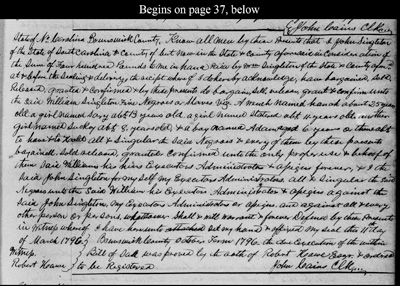 Begins on page 37, below
John Cains C.C.
State of No. Carolina Brunswick County. Know all men by these Presents that I John Singleton
of the State of No. Carolina & County of
the Sum of Four hundred Pounds to me in hand Paid by Wm. Singleton of the State & County
at & before the Sealing & delivery the receipt whereof I do hereby acknowledge, have bargained, Sold,
Released, granted & Confirmed & by these presents do bargain, sell, release, grant & Confirm unto
the Said William Singleton Five Negroes a Slaves Viz. A wench Named hanah about 35 years
old a girl named Sary abt 13 years old a girl Named abt 11 years old, another
girl named Suckey abt 8 years old & a boy named Adam aged 6 years or thereabt
to have & to hold all & Singular the Said Negroes & every of them by these presents
bargained, Sold, released, granted & Confirmed unto the only proper use & behoof of
them Said Williams his heirs Executors Administrators & Assigns forever, & I the
Said John Singleton for my Self my Executors Administrators all & Singular the Said
Negroes unto the Said William his Executors Administrators & Assigns against the
Said John Singleton, My Executors Administrators or Assigns, and against all & every
other person or persons whatsoever Shall & will warrant & forever Defend by these Presents
in Witness whereof I have hereunto my hand & affixed my Seal this 11th day
of March 1796. Brunswick County October Term 1796. the due Execution of the within
Witness, Bill of was proved by the oath of Robert Howe Esqr & ordered
Robert Howe to be Registered John Cains C.C.